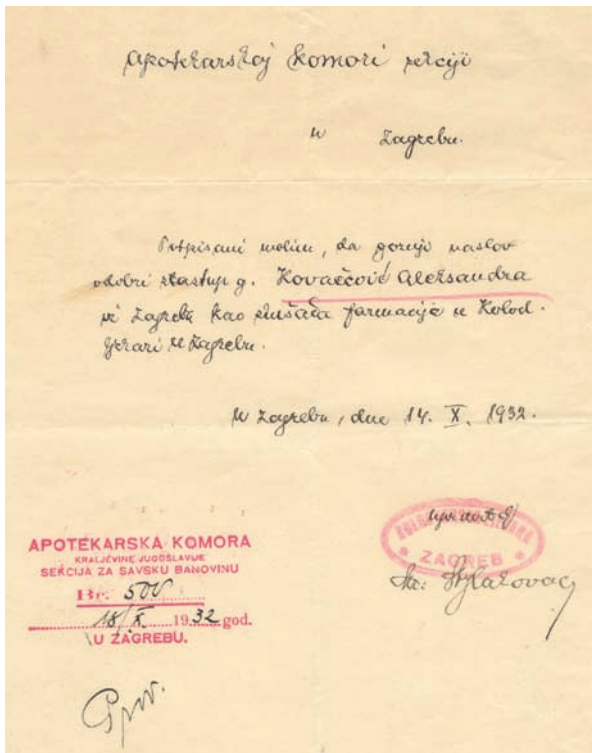 Apotekarskoj komori sekciji
u Zagrebu.
Potpisani molim, da gornji naslov
odobri nastup g. Kovačćović Aleksandra
iz Zagreba kao slušača farmacije u Kolod.
ljekari u Zagrebu.
U Zagrebu, dne 14. X. 1932.
upravitelj
ZAGREB
Mr.
APOTEKARSKA KOMORA
KRALJEVINE JUGOSLAVIJE
SEKCIJA ZA SAVSKU BANOVINU
Br. 500
18/X. 1932 god.
U ZAGREBU.